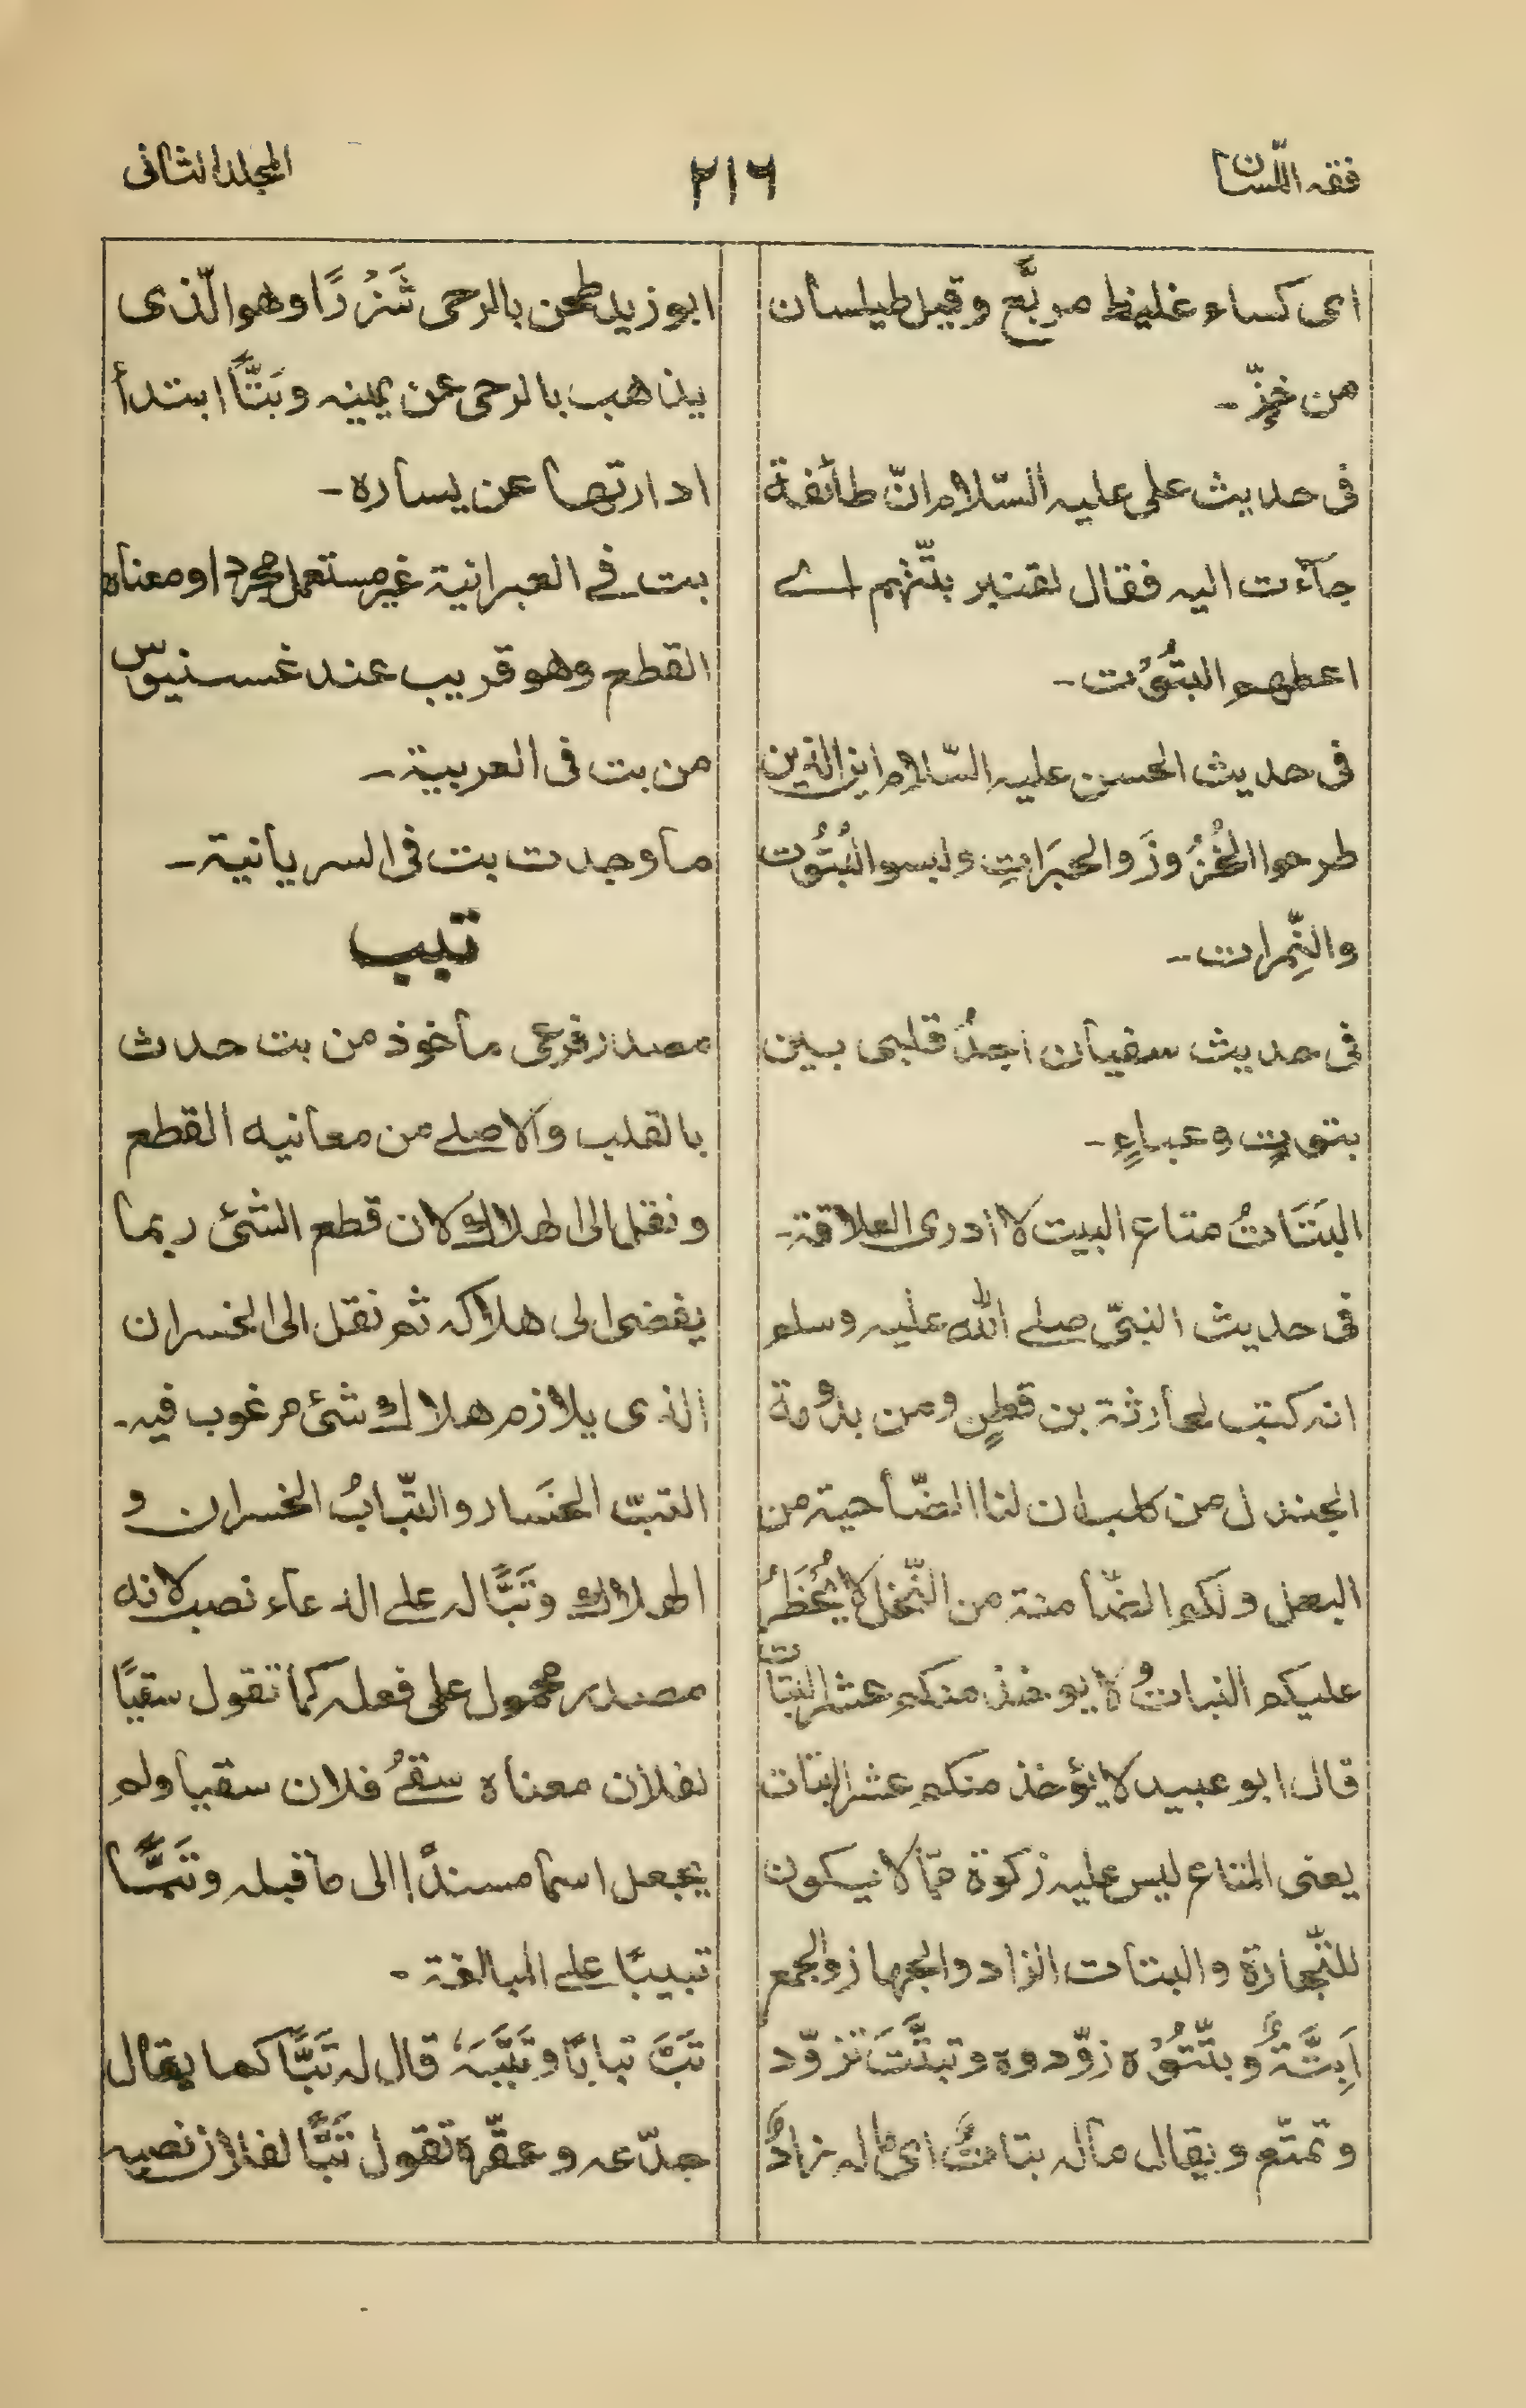 فقه اللّسان
٢١٦
المجلد الثانی
ای کساء غلیظ مربَّع وقیل طیلسان
من خزّ۔
فی حدیث علی علیہ السّلام انّ طائفة
جآءت الیہ فقال لقنبر بتّتهم اے
اعطهم البتُوُت۔
فی حدیث الحسن علیہ السّلام این الذین
طرحوا الخُزُوزَ والحبَراتِ ولبسوا البُتُوُت
والنِّمرات۔
فی حدیث سفیان اجدُ قلبی بین
بتوتٍ وعباءٍ۔
البَتَاتُ متاع البیت لا أدری العلاقة۔
فی حدیث النبیّ صلے اللّٰه علیہ وسلم
انہ کتب لحارثة بن قطنٍ ومن بدُومة
الجندل من کلب ان لنا الضّاحیة من
البعل ولکم الضّامنة من النّخل لا یُحظَرُ
علیکم النباتُ ولا یوخذ منکم عشر البتات
قال ابو عبید لا یؤخذ منکم عشر البتات
یعنی المتاع لیس علیہ زکوٰة ممّا لا یکون
للتّجارة والبتات الزاد والجهاز والجمع
اَبِتَّةٌ وبتّتُوْه زوّدوه وتبتَّتَ تزوّد
وتمتّع ویقال مآلہ بتاتٌ ای ما لہ زادٌ
ابو زید طحن بالرحی شَزْرًا وهو الّذی
یذهب بالرحی عن یمینہ وبَتًّا ابتدأ
ادارتها عن یساره۔
بت فے العبرانیة غیر مستعمل مجردا ومعناه
القطع وهو قریب عند غسنیوس
من بت فی العربیة۔
ما وجدت بت فی السریانیة۔
تبب
مصدر فرعی ماخوذ من بت حدث
بالقلب والاصلے من معانیه القطع
ونقل الی الهلاك لان قطع الشئ ربما
یفضی الی هلاکہ ثم نقل الی الخسران
الذی یلازم هلاك شئ مرغوب فیہ۔
التبّ الخسَار والتّبابُ الخسران و
الهلاك وتَبًّا لہ علی الدعاء نصب لانه
مصدر محمول علی فعلہ کما تقول سقیًا
لفلان معناه سقےُ فلان سقیا ولم
یجعل اسما مسندًا الی ما قبلہ وتَبًّا
تبیبًا علے المبالغة۔
تَبَّ تبابًا وتَبَّبَہٗ قال لہ تَبًّا کما یقال
جدّعہ وعقّره تقول تَبًّا لفلان نصبہ